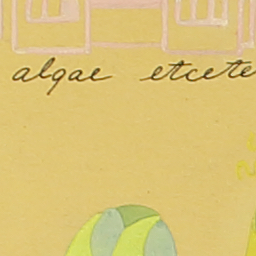 algae etcete